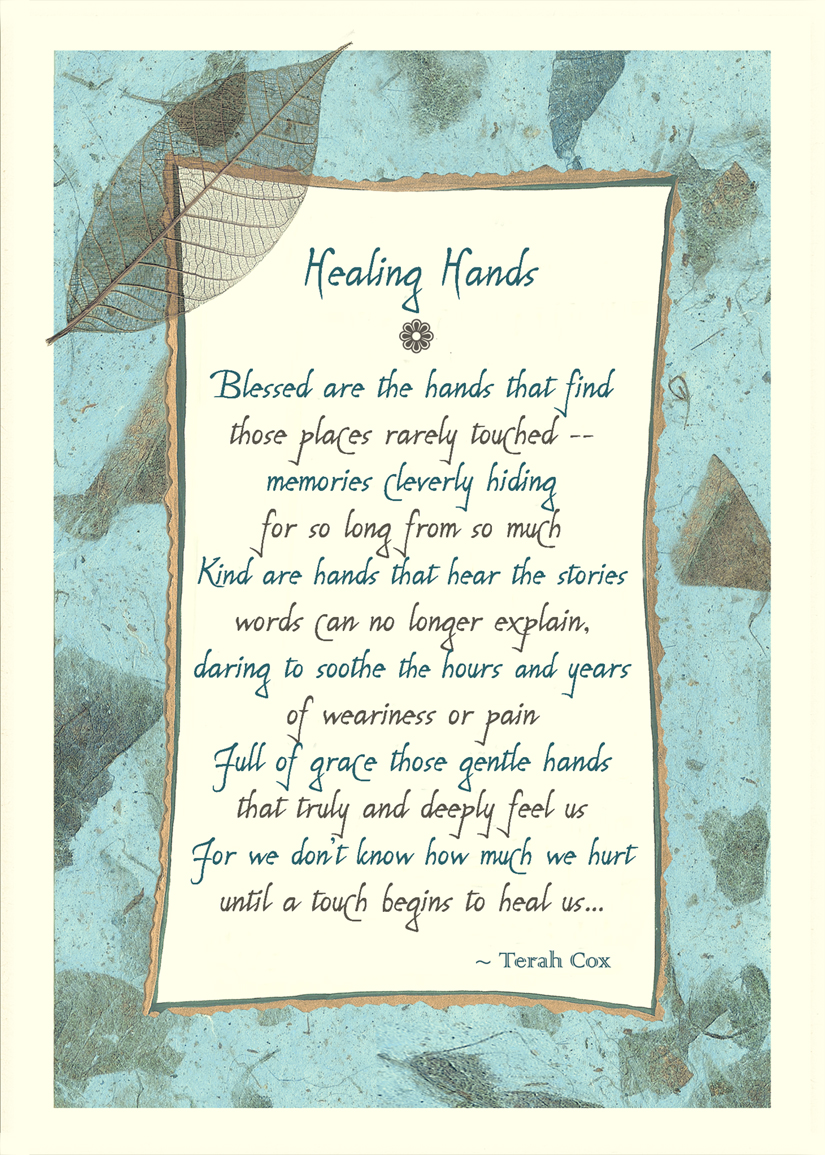 Healing Hands
Blessed are the hands that find
those places rarely touched --
memories cleverly hiding
for so long from so much
Kind are hands that hear the stories
words can no longer explain,
daring to soothe the hours and years
of weariness or pain
Full of grace those gentle hands
that truly and deeply feel us
For we don't know how much we hurt
until a touch begins to heal us...
~ Terah Cox